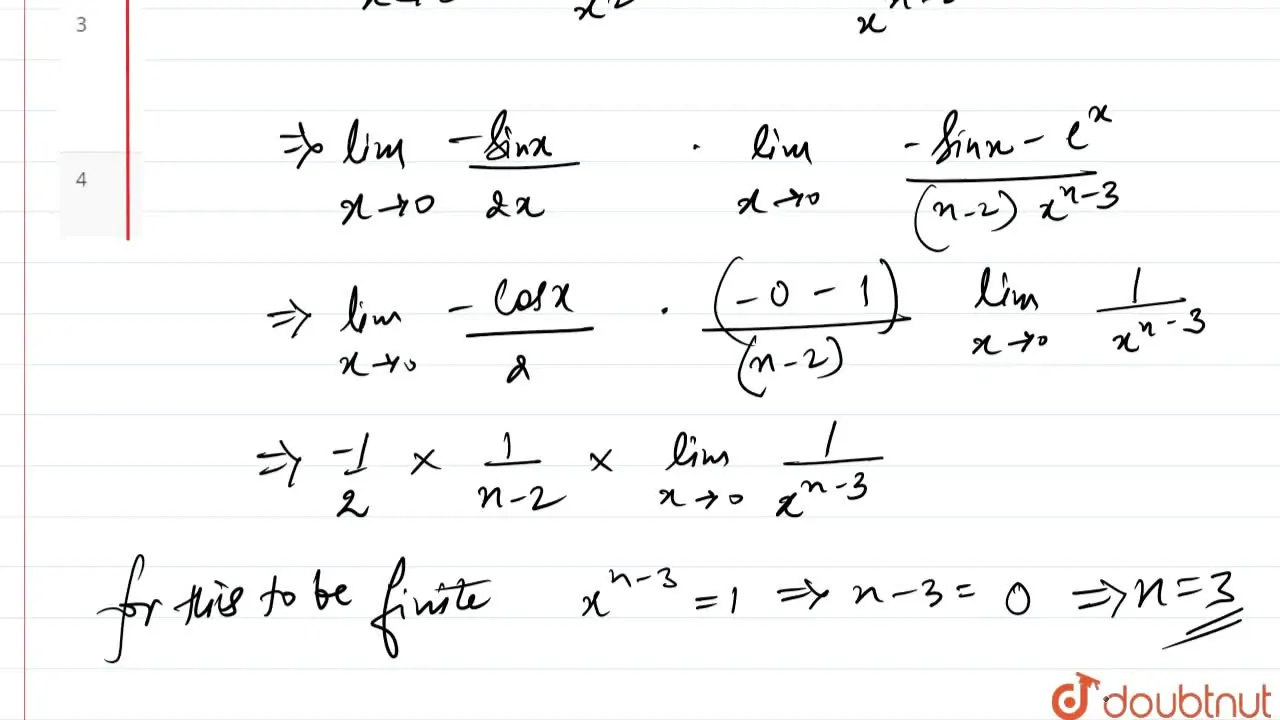 3
x→0 x² xⁿ⁻
⇒ lim x→0 -sinx/2x · lim x→0 (-sinx - eˣ)/((n-2) xⁿ⁻³)
4
⇒ lim x→0 -cosx/2 · (-0-1)/(n-2) lim x→0 1/xⁿ⁻³
⇒ -1/2 × 1/n-2 × lim x→0 1/xⁿ⁻³
for this to be finite xⁿ⁻³ = 1 ⇒ n-3 = 0 ⇒ n = 3
doubtnut